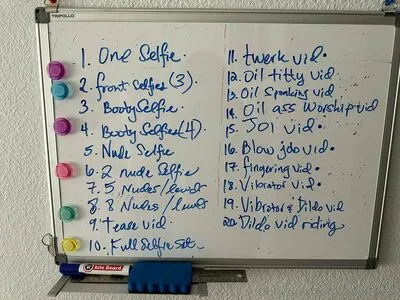 TRIPOLLO
1. One Selfie.
2. front selfies (3).
3. Booty Selfie.
4. Booty Selfies (4)
5. Nude Selfie
6. 2 nude Selfie
7. 5 Nudes/
8. 8 Nudes/
9. tease vid.
10. Full Selfie Set.
11. twerk vid.
12. Oil titty vid
13. Oil Spanking vid
14. Oil ass Worship vid
15. JOI vid.
16. Blow jdo vid.
17. fingering vid.
18. Vibrator vid.
19. Vibrator & Dildo vid
20. Dildo vid riding
Board